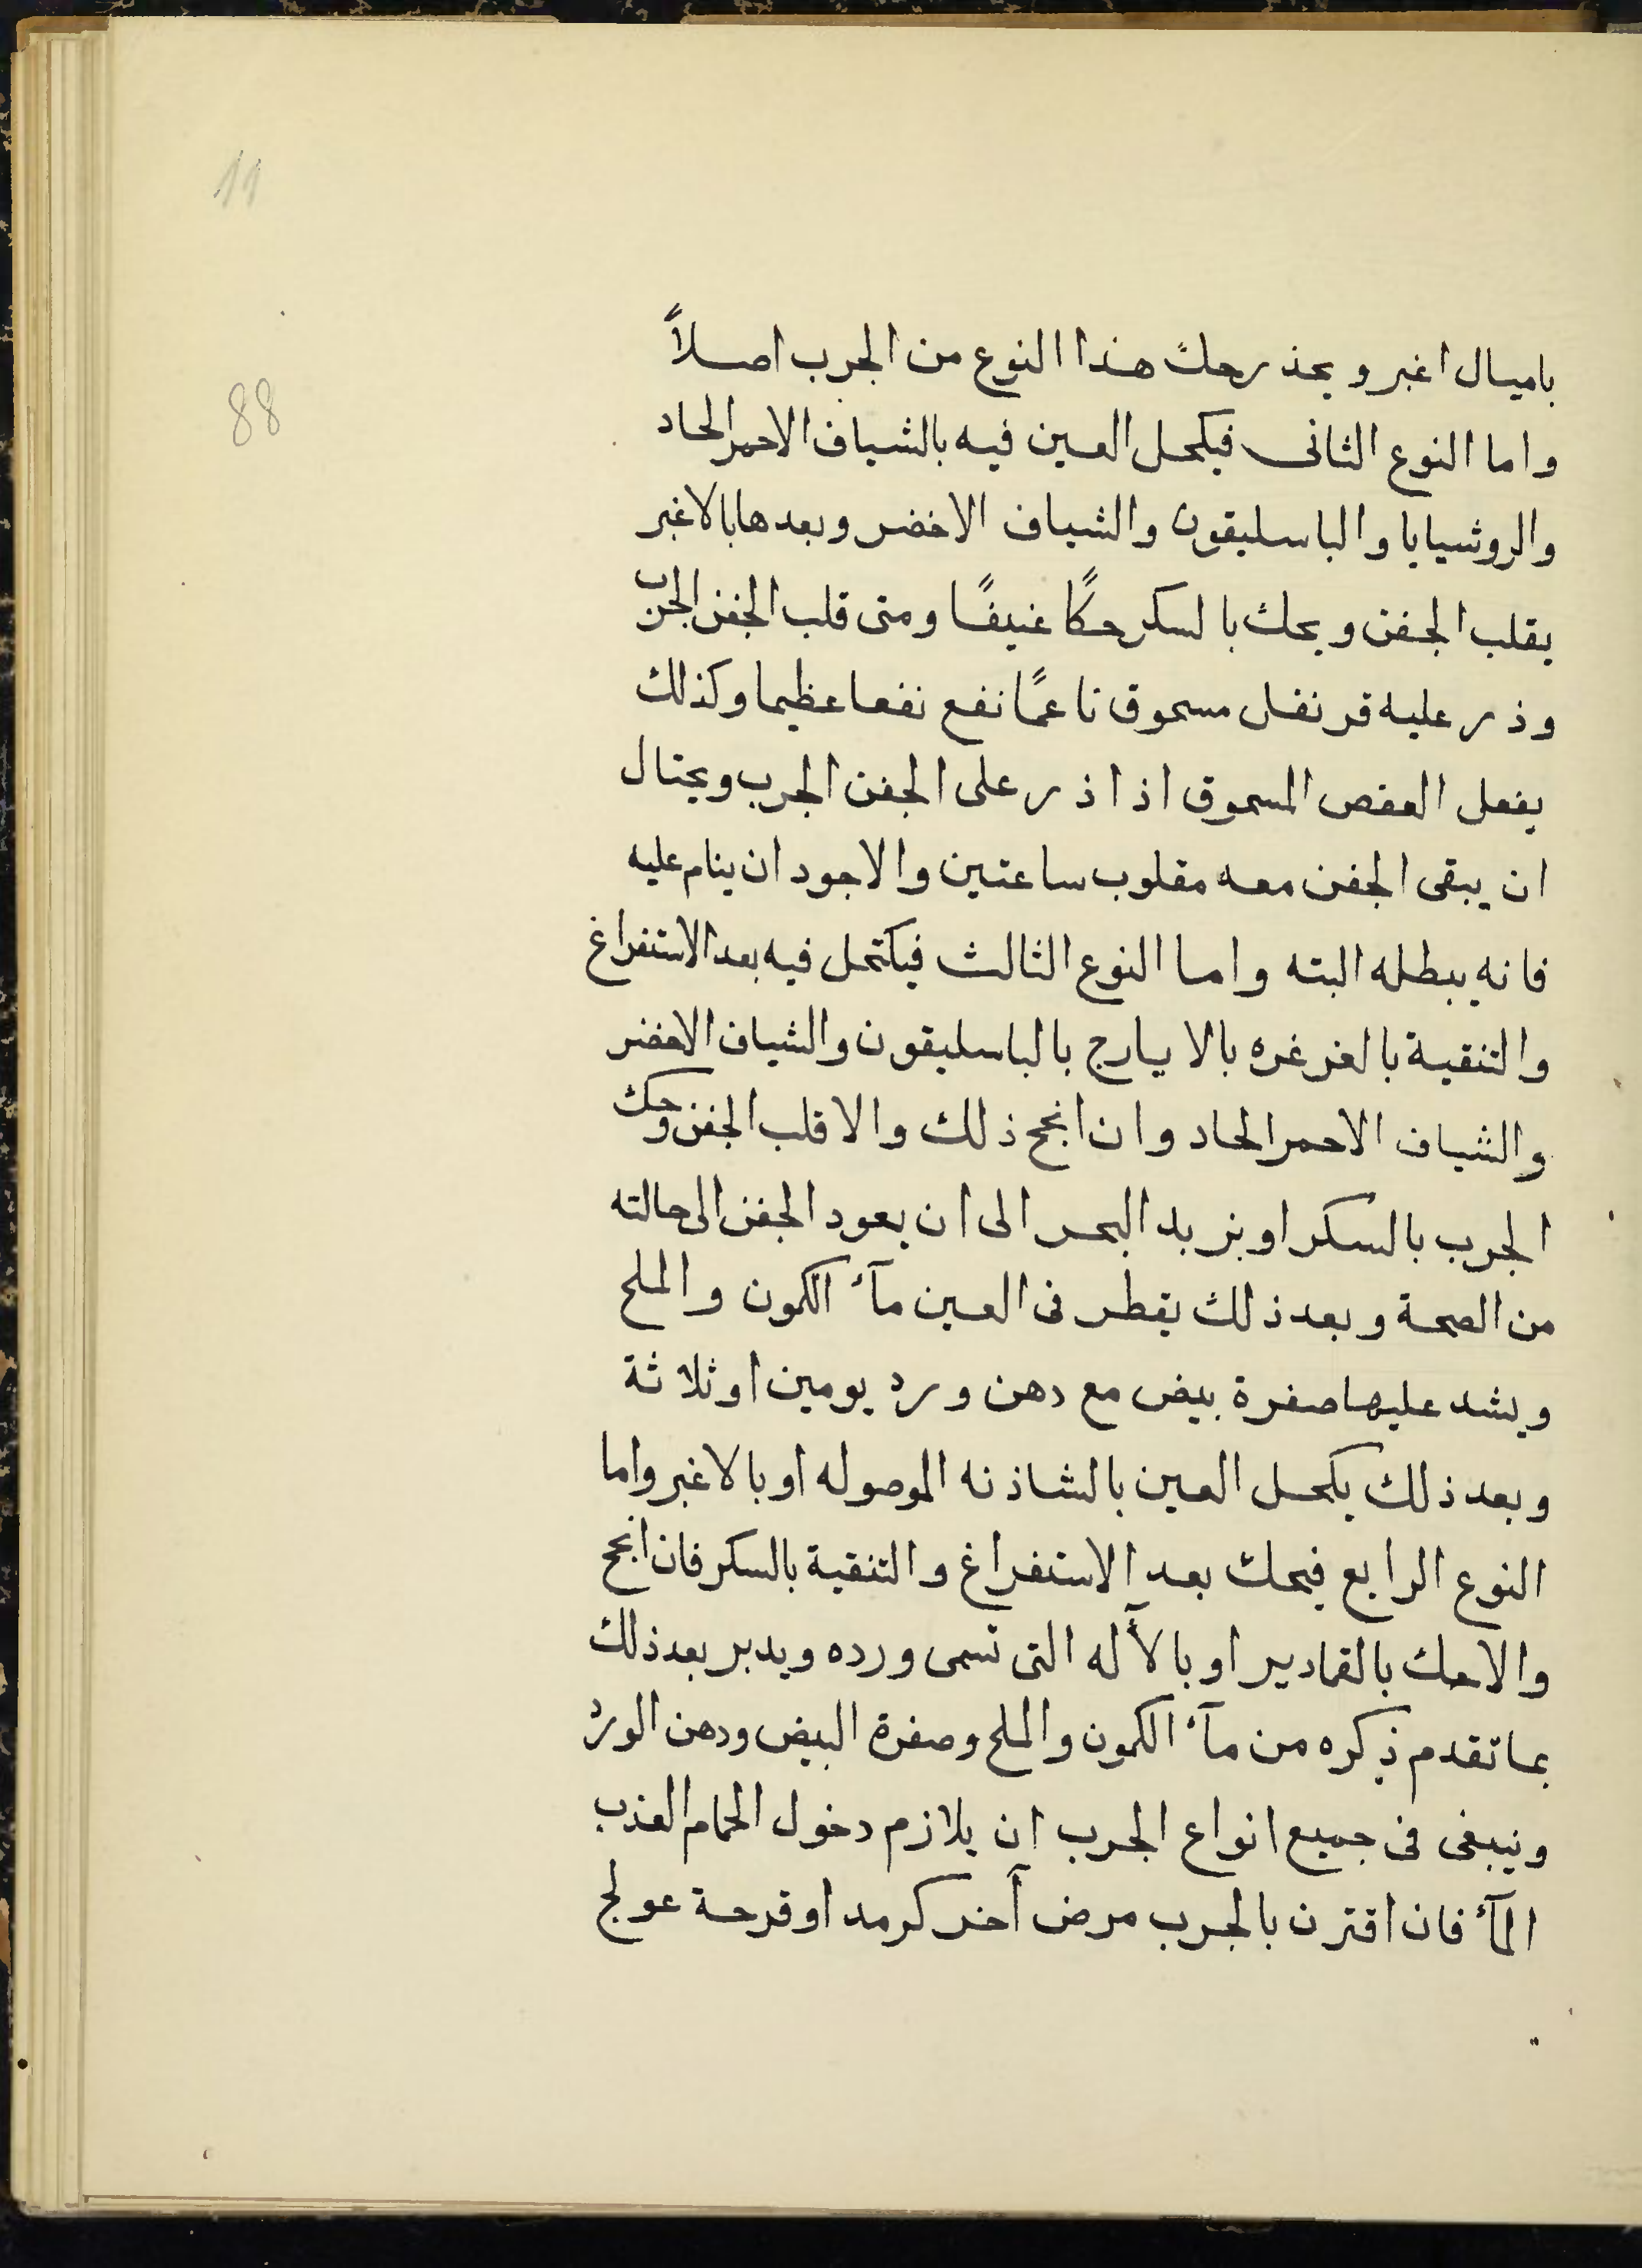 11
88
باميال اغبر ويحذر حك هذا النوع من الجرب اصلاً
واما النوع الثانى فيكحل العين فيه بالشياف الاحمر الحاد
والروشيايا والباسليقون والشياف الاخضر وبعدها بالاغبر
يقلب الجفن ويحك بالسكر حكًا عنيفًا ومتى قلب الجفن الجرب
وذر عليه قرنفل مسحوق ناعمًا نفع نفعا عظيما وكذلك
يفعل العفص المسحوق اذا ذر على الجفن الجرب ويحتال
ان يبقى الجفن معه مقلوب ساعتين والاجود ان ينام عليه
فانه يبطله البته واما النوع الثالث فيكتحل فيه بعد الاستفراغ
والتنقية بالغرغره بالايارج بالباسليقون والشياف الاخضر
والشياف الاحمر الحاد وان انجح ذلك والا قلب الجفن وحك
الجرب بالسكر او بزبد البحر الى ان يعود الجفن الى حالته
من الصحة وبعد ذلك يقطر فى العين مآء الكمون والملح
ويشد عليها صفرة بيض مع دهن ورد يومين او ثلاثة
وبعد ذلك يكحل العين بالشاذنه الموصوله او بالاغبر واما
النوع الرابع فيحك بعد الاستفراغ والتنقية بالسكر فان انجح
والا حك بالقمادير او بالآله التى تسمى ورده ويدبر بعد ذلك
بما تقدم ذكره من مآء الكمون والملح وصفرة البيض ودهن الورد
وينبغى فى جميع انواع الجرب ان يلازم دخول الحمام العذب
المآء فان اقترن بالجرب مرض آخر كرمد او قرحة عولج